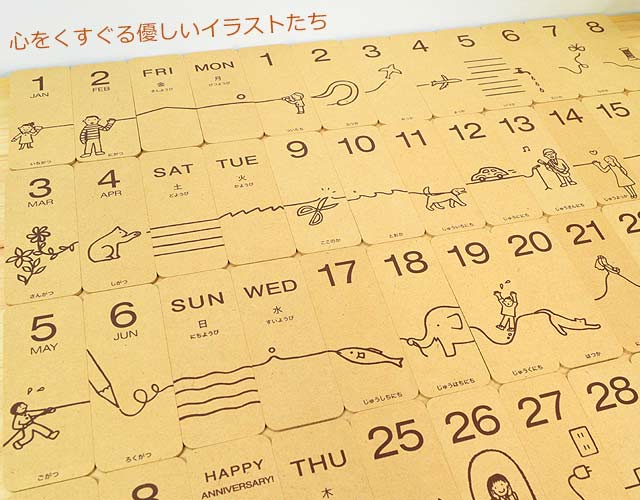 心をくすぐる優しいイラストたち
1 2 FRI MON 1 2 3 4 5 6 7 8
JAN FEB 金 月
きんようび げつようび
いちがつ にがつ ついたち ふつか
3 4 SAT TUE 9 10 11 12 13 14 15
MAR APR 土 火
どようび かようび
さんがつ しがつ ここのか とおか じゅういちにち じゅうににち じゅうさんにち じゅうよっか
5 6 SUN WED 17 18 19 20 21
MAY JUN 日 水
にちようび すいようび
ごがつ ろくがつ じゅうしちにち じゅうはちにち じゅうくにち はつか
8 HAPPY THU 25 26 27 28
ANNIVERSARY! 木